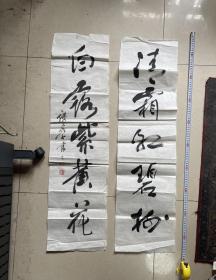 清霜红碧树
白露紫黄花